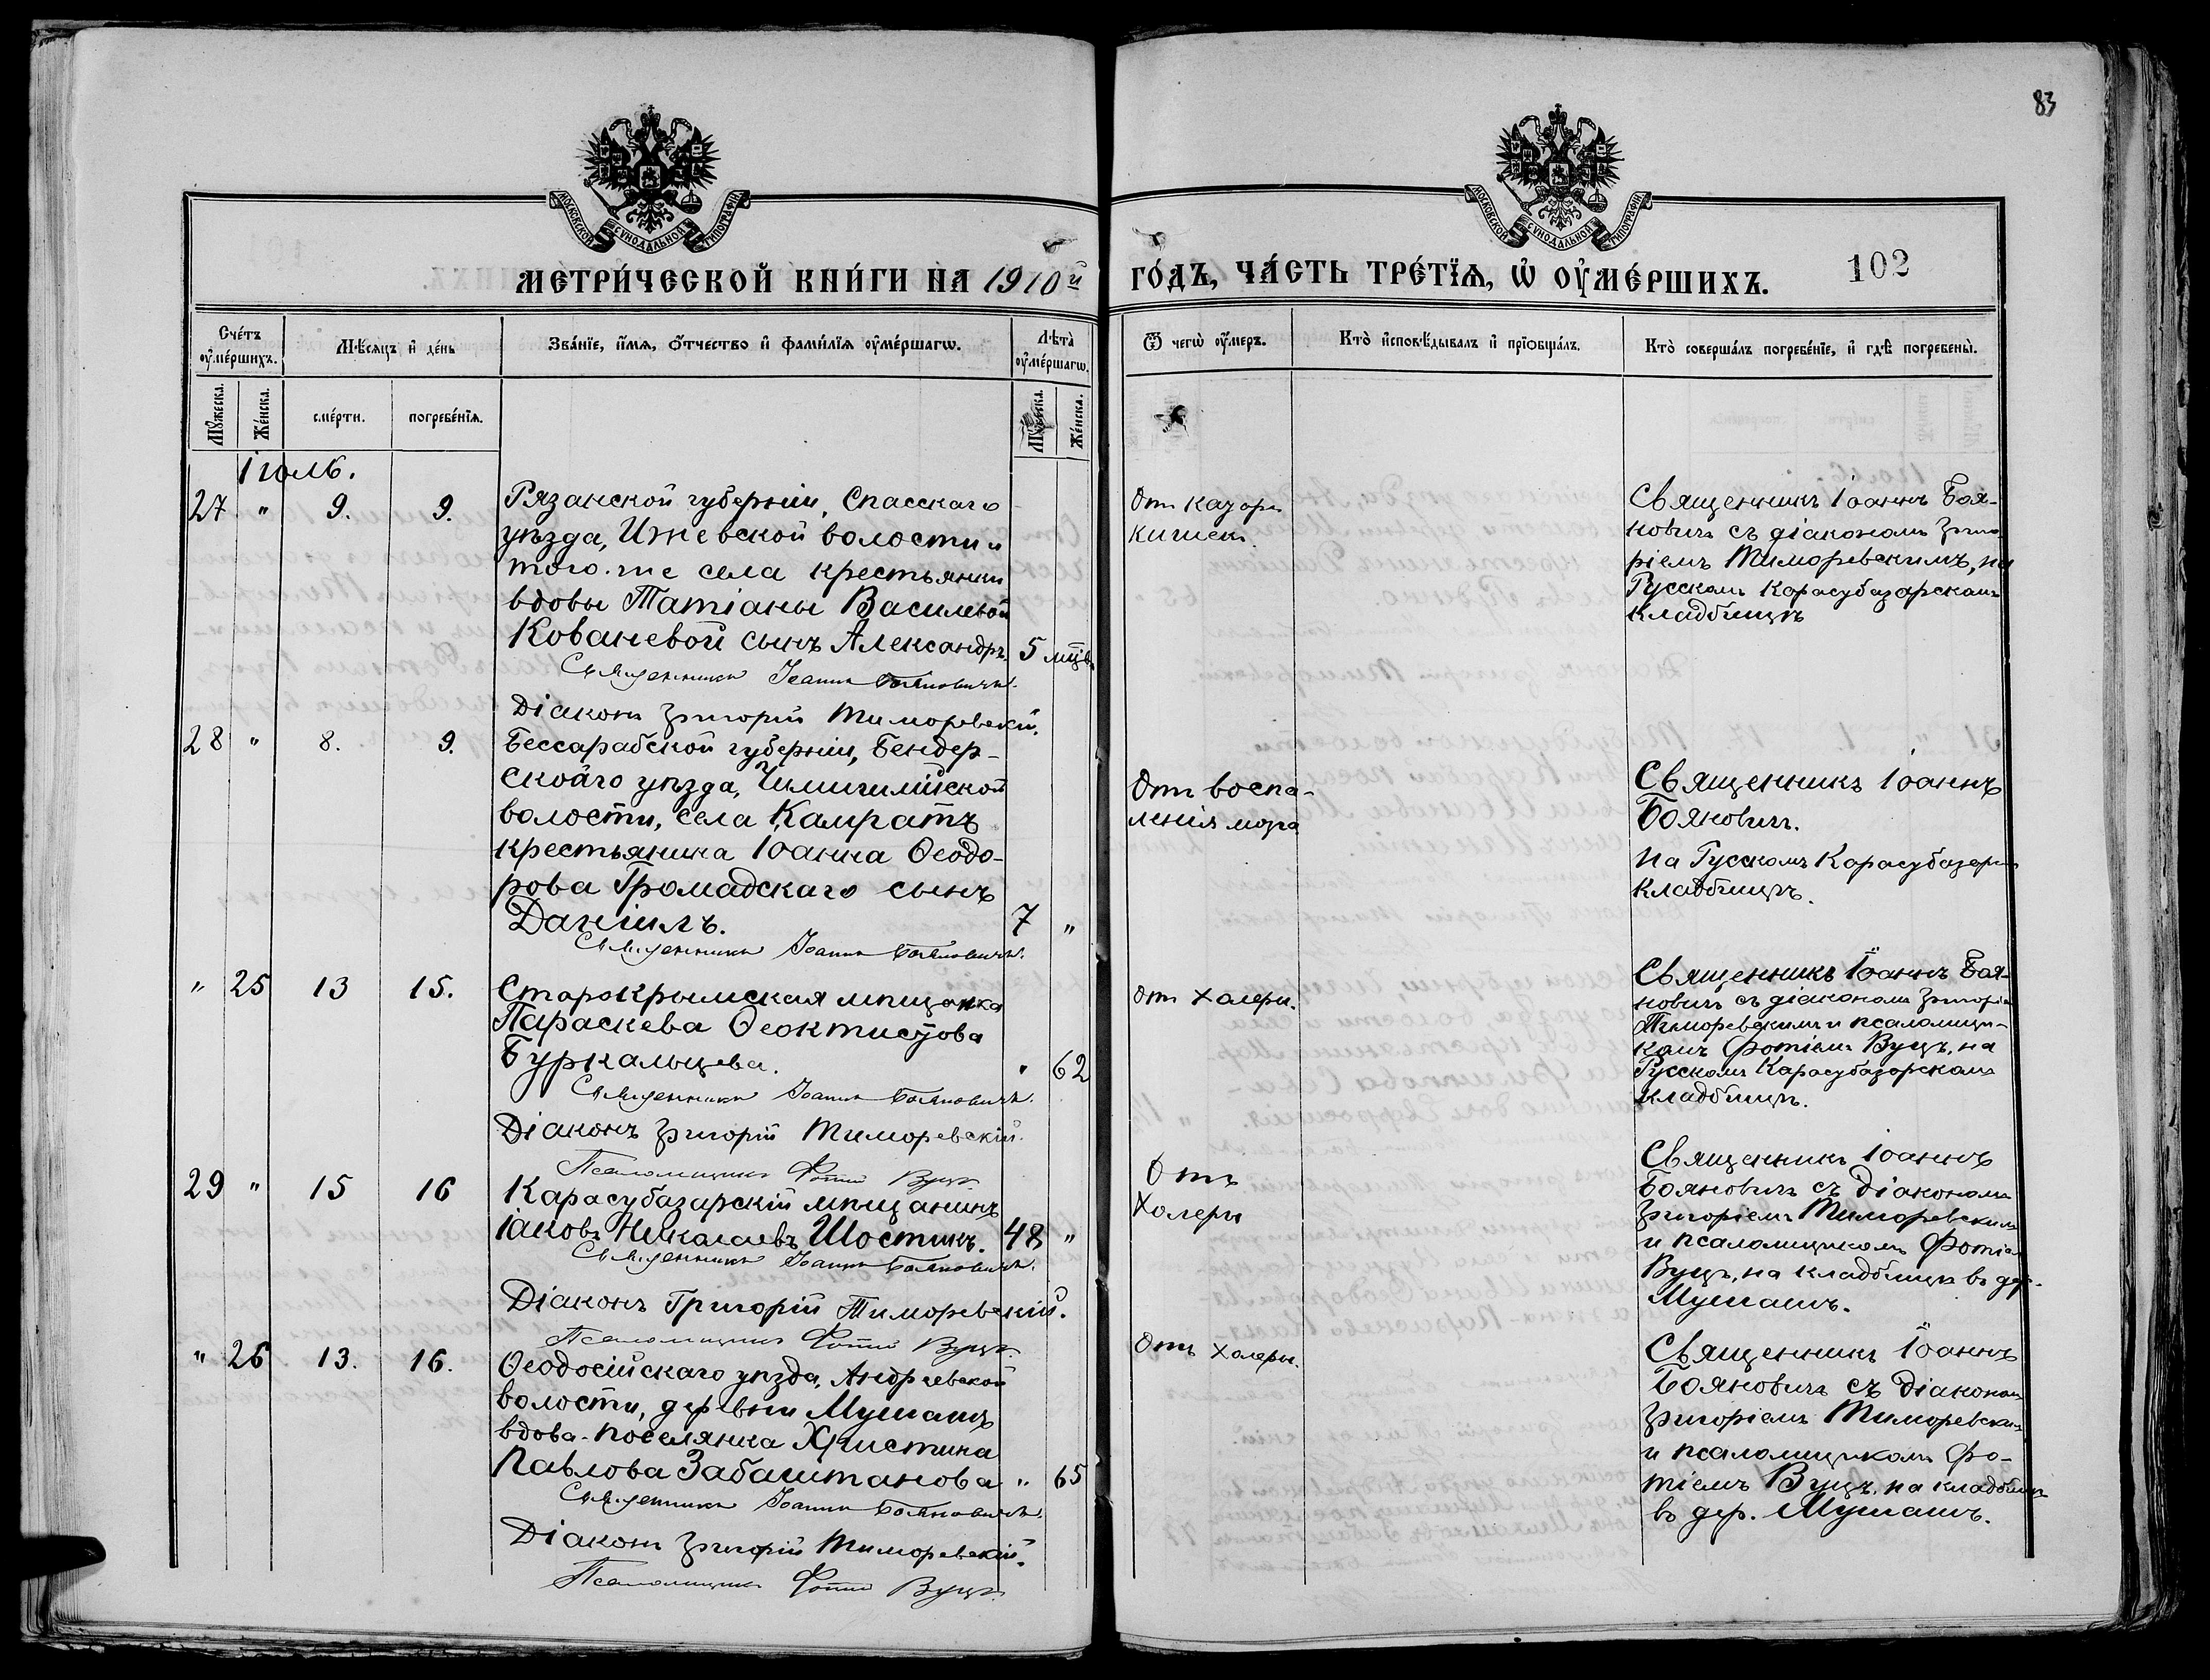 83
МОСКОВСКОЙ СѴНОДАЛЬНОЙ ТИПОГРАФІИ
МОСКОВСКОЙ СѴНОДАЛЬНОЙ ТИПОГРАФІИ
МЕТРИ́ЧЕСКОЙ КНИ́ГИ НА 1910й
ГО́ДЪ, ЧА́СТЬ ТРЕ́ТЇѦ, Ѡ҆ ОУ҆МЕ́РШИХЪ.
102
Сче́тъ оу҆ме́ршихъ.
Мѣ́сяцъ и҆ де́нь
Зва́нїе, и҆́мѧ, ѻ҆́тчество и҆ фами́лїѧ оу҆ме́ршагѡ.
Лѣ́та̀ оу҆ме́ршагѡ.
Ѿ чегѡ̀ оу҆́меръ.
Кто̀ и҆сповѣ́дывалъ и҆ прїѡбща́лъ.
Кто̀ соверша́лъ погребе́нїе, и҆ гдѣ̀ погребены̀.
Мꙋ́жеска.
Же́нска.
сме́рти.
погребе́нїѧ.
Мꙋ́жеска.
Же́нска.
Іюль.
27 " 9. 9.
Рязанской губерніи, Спасскаго
уѣзда, Ижевской волости и
того-же села крестьянки
вдовы Татіаны Васильевой
Кованевой сынъ Александръ. 5 мцв.
Священникъ Іоаннъ Бояновичъ.
Діаконъ Григорій Тиморевскій.
От
Священникъ Іоаннъ Боя-
новичъ съ діакономъ Григо
ріемъ Тиморевскимъ, на
Русскомъ Карасубазарскомъ
кладбищѣ
28 " 8. 9.
Бессарабской губерніи, Бендер-
скаго уѣзда, Чимишлійской
волости, села Камратъ
крестьянина Іоанна Ѳеодо-
рова Громадскаго сынъ
Даніилъ. 7 "
Священникъ Іоаннъ Бояновичъ.
Отъ воспа-
ленія мозга
Священникъ Іоаннъ
Бояновичъ.
на Русскомъ Карасубазарс
кладбищѣ.
" 25 13 15.
Старокрымская мѣщанка
Параскева Ѳеоктистова
Буркальцева. " 62
Священникъ Іоаннъ Бояновичъ.
Діаконъ Григорій Тиморевскій.
Псаломщикъ Фотій Вуцъ.
Отъ холеры.
Священникъ Іоаннъ Боя-
новичъ съ діакономъ Григорie
Тиморевскимъ и псаломщи-
комъ Фотіемъ Вуцъ, на
Русскомъ Карасубазарскомъ
кладбищѣ.
29 " 15 16
Карасубазарскій мѣщанинъ
Іаковъ Николаевъ Шостикъ. 48 "
Священникъ Іоаннъ Бояновичъ.
Діаконъ Григорій Тиморевскій.
Псаломщикъ Фотій Вуцъ.
Отъ
холеры
Священникъ Іоаннъ
Бояновичъ съ Діакономъ
Григоріемъ Тиморевским
и псаломщикомъ Фотіе
Вуцъ, на кладбищѣ въ дер.
Мушашъ.
" 26 13. 16.
Ѳеодосійскаго уѣзда, Андреевской
волости, деревни Мушашъ
вдова-поселянка Христина
Павлова Забаштанова " 65
Священникъ Іоаннъ Бояновичъ.
Діаконъ Григорій Тиморевскій.
Псаломщикъ Фотій Вуцъ.
Отъ холеры.
Священникъ Іоаннъ
Бояновичъ съ Діакономъ
Григоріемъ Тиморевским
и псаломщикомъ Фо-
тіемъ Вуцъ, на кладбищ
въ дер. Мушашъ.